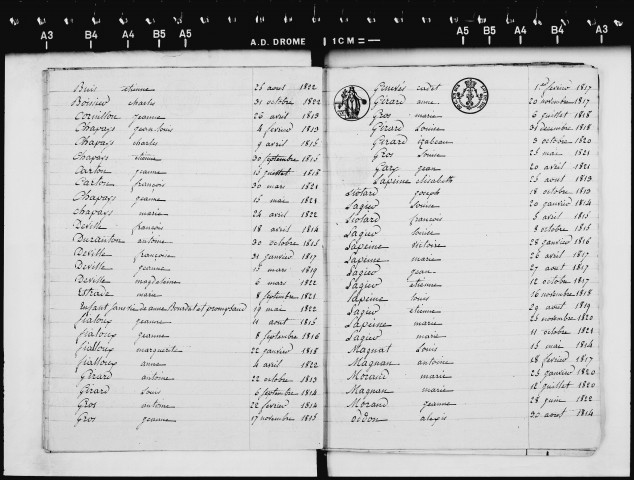 A3 B4 A4 B5 A5 A.D. DROME 1CM A5 B5 A4 B4 A3
Buis etienne 25 aout 1822
Boisieu charles 31 octobre 1822
Cornillon jeanne 26 avril 1813
Chapays jean louis 4 fevrier 1813
Chapays charles 9 avril 1815
Chapays etienne 30 septembre 1815
Carlon jeanne 15 juillet 1818
Carlon françois 30 mars 1821
Chapays jeanne 15 mai 1821
chapays marie 24 avril 1822
Deville françois 18 avril 1814
Duranton antoine 30 octobre 1815
Deville françoise 31 janvier 1817
Deville jeanne 15 mars 1819
Deville magdelaine 6 mars 1822
Estrade marie 8 septembre 1821
Enfant sans vie de anne Bourdat et 19 mai 1822
jeanne 11 aout 1815
jeanne 8 septembre 1816
marguerite 22 janvier 1818
anne 4 avril 1822
Girard antoine 22 octobre 1813
Girard Louis 6 septembre 1814
Gros antoine 22 fevrier 1814
Gros jeanne 17 novembre 1815
cadet 1er fevrier 1817
Gérard anne 20 novembre 1817
Gros marie 6 juillet 1818
Gérard Louise 31 decembre 1818
Gérard izabeau 3 octobre 1820
Gros Louise 25 mai 1821
Gary jean 20 avril 1821
Lapeine elisabeth 25 aout 1813
joseph 18 octobre 1813
Lagier Louise 20 janvier 1814
françois 5 avril 1815
Lagier Louise 3 octobre 1815
Lapeine victoire 28 janvier 1816
Lapeine marie 26 avril 1817
Lagier jean 27 aout 1817
Lagier etienne 12 octobre 1817
Lapeine louis 16 novembre 1818
Lagier etienne 29 avril 1819
Lapeine marie 25 novembre 1820
Lagier marie 11 octobre 1821
Magnat Louis 15 mai 1814
Magnan antoine 18 fevrier 1817
Morand marie 25 janvier 1820
Magnan marie 12 juillet 1820
Morand jeanne 28 juin 1822
oddon alexis 30 aout 1814